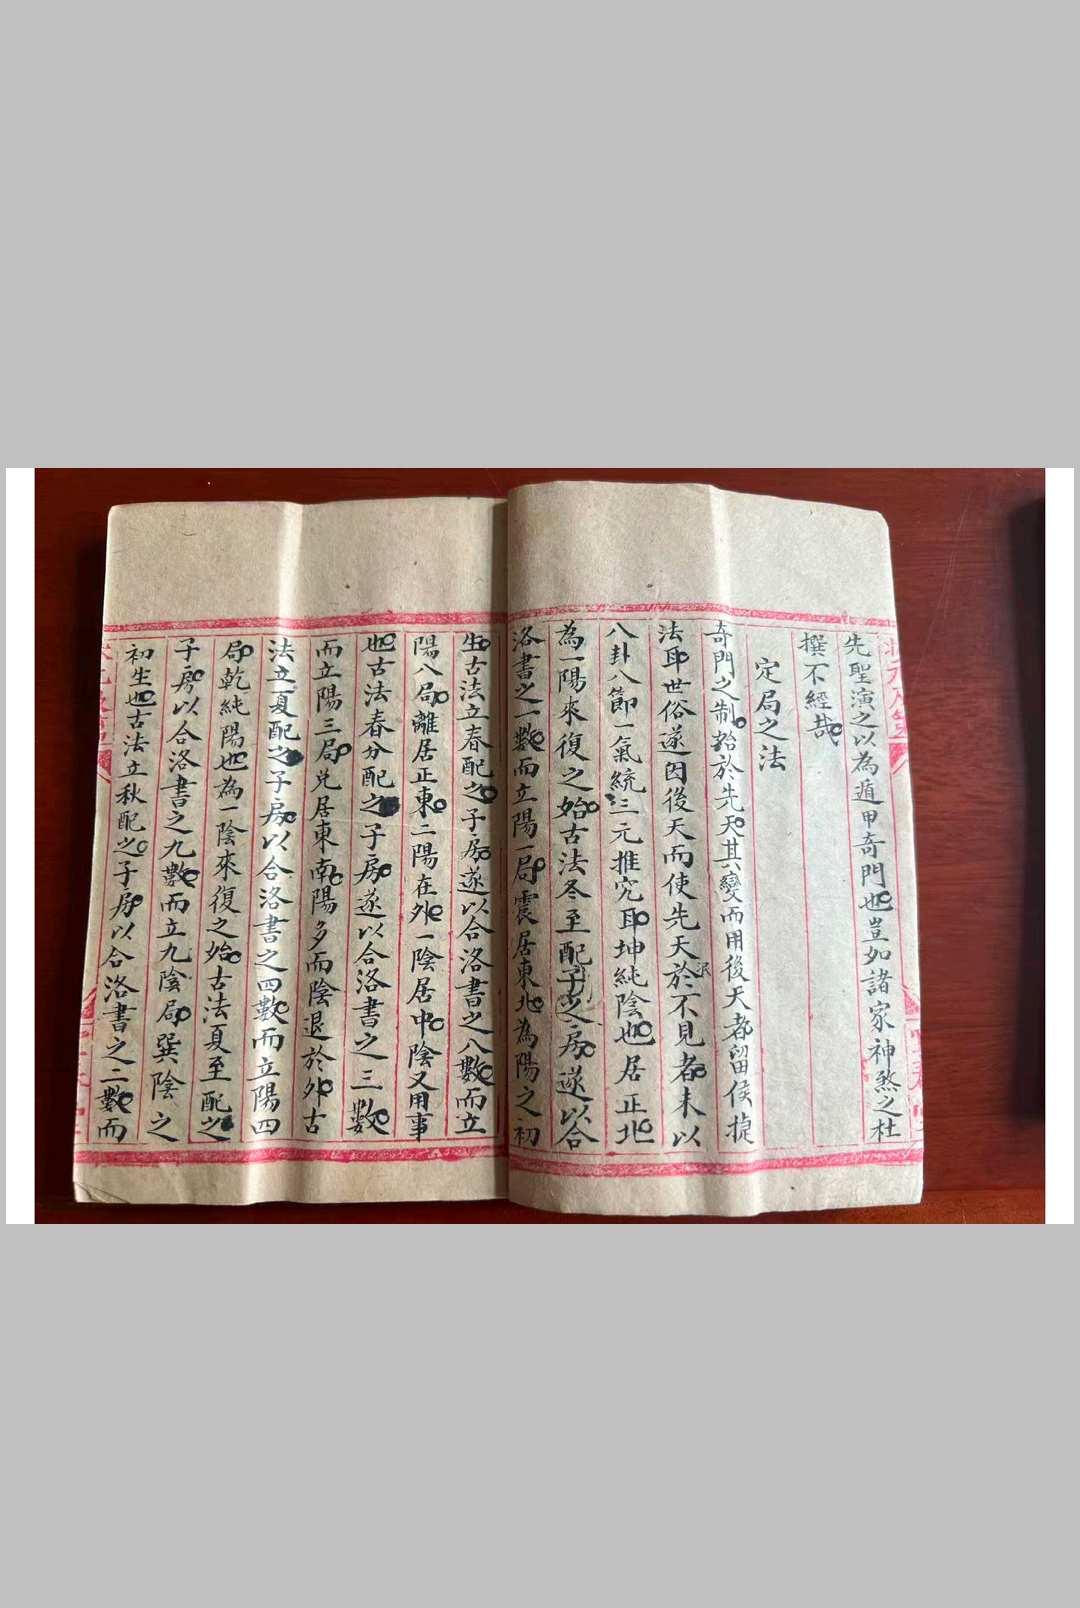 先聖演之以為遁甲奇門也豈如諸家神煞之杜
撰不經哉
定局之法
奇門之制始於先天其變而用後天者留侯捷
法耶世俗遂因後天而使先天於泯不見者未以
八卦八節一氣統三元推究耳坤純陰也居正北
為一陽來復之始古法冬至配子之房遂以合
洛書之一數而立陽一局震居東北為陽之初
生古法立春配之子房遂以合洛書之八數而立
陽八局離居正東二陽在外一陰居中陰又用事
也古法春分配之子房遂以合洛書之三數
而立陽三局兌居東南陽多而陰退於外古
法立夏配之子房以合洛書之四數而立陽四
局乾純陽也為一陰來復之始古法夏至配之
子房以合洛書之九數而立九陰局巽陰之
初生也古法立秋配之子房以合洛書之二數而